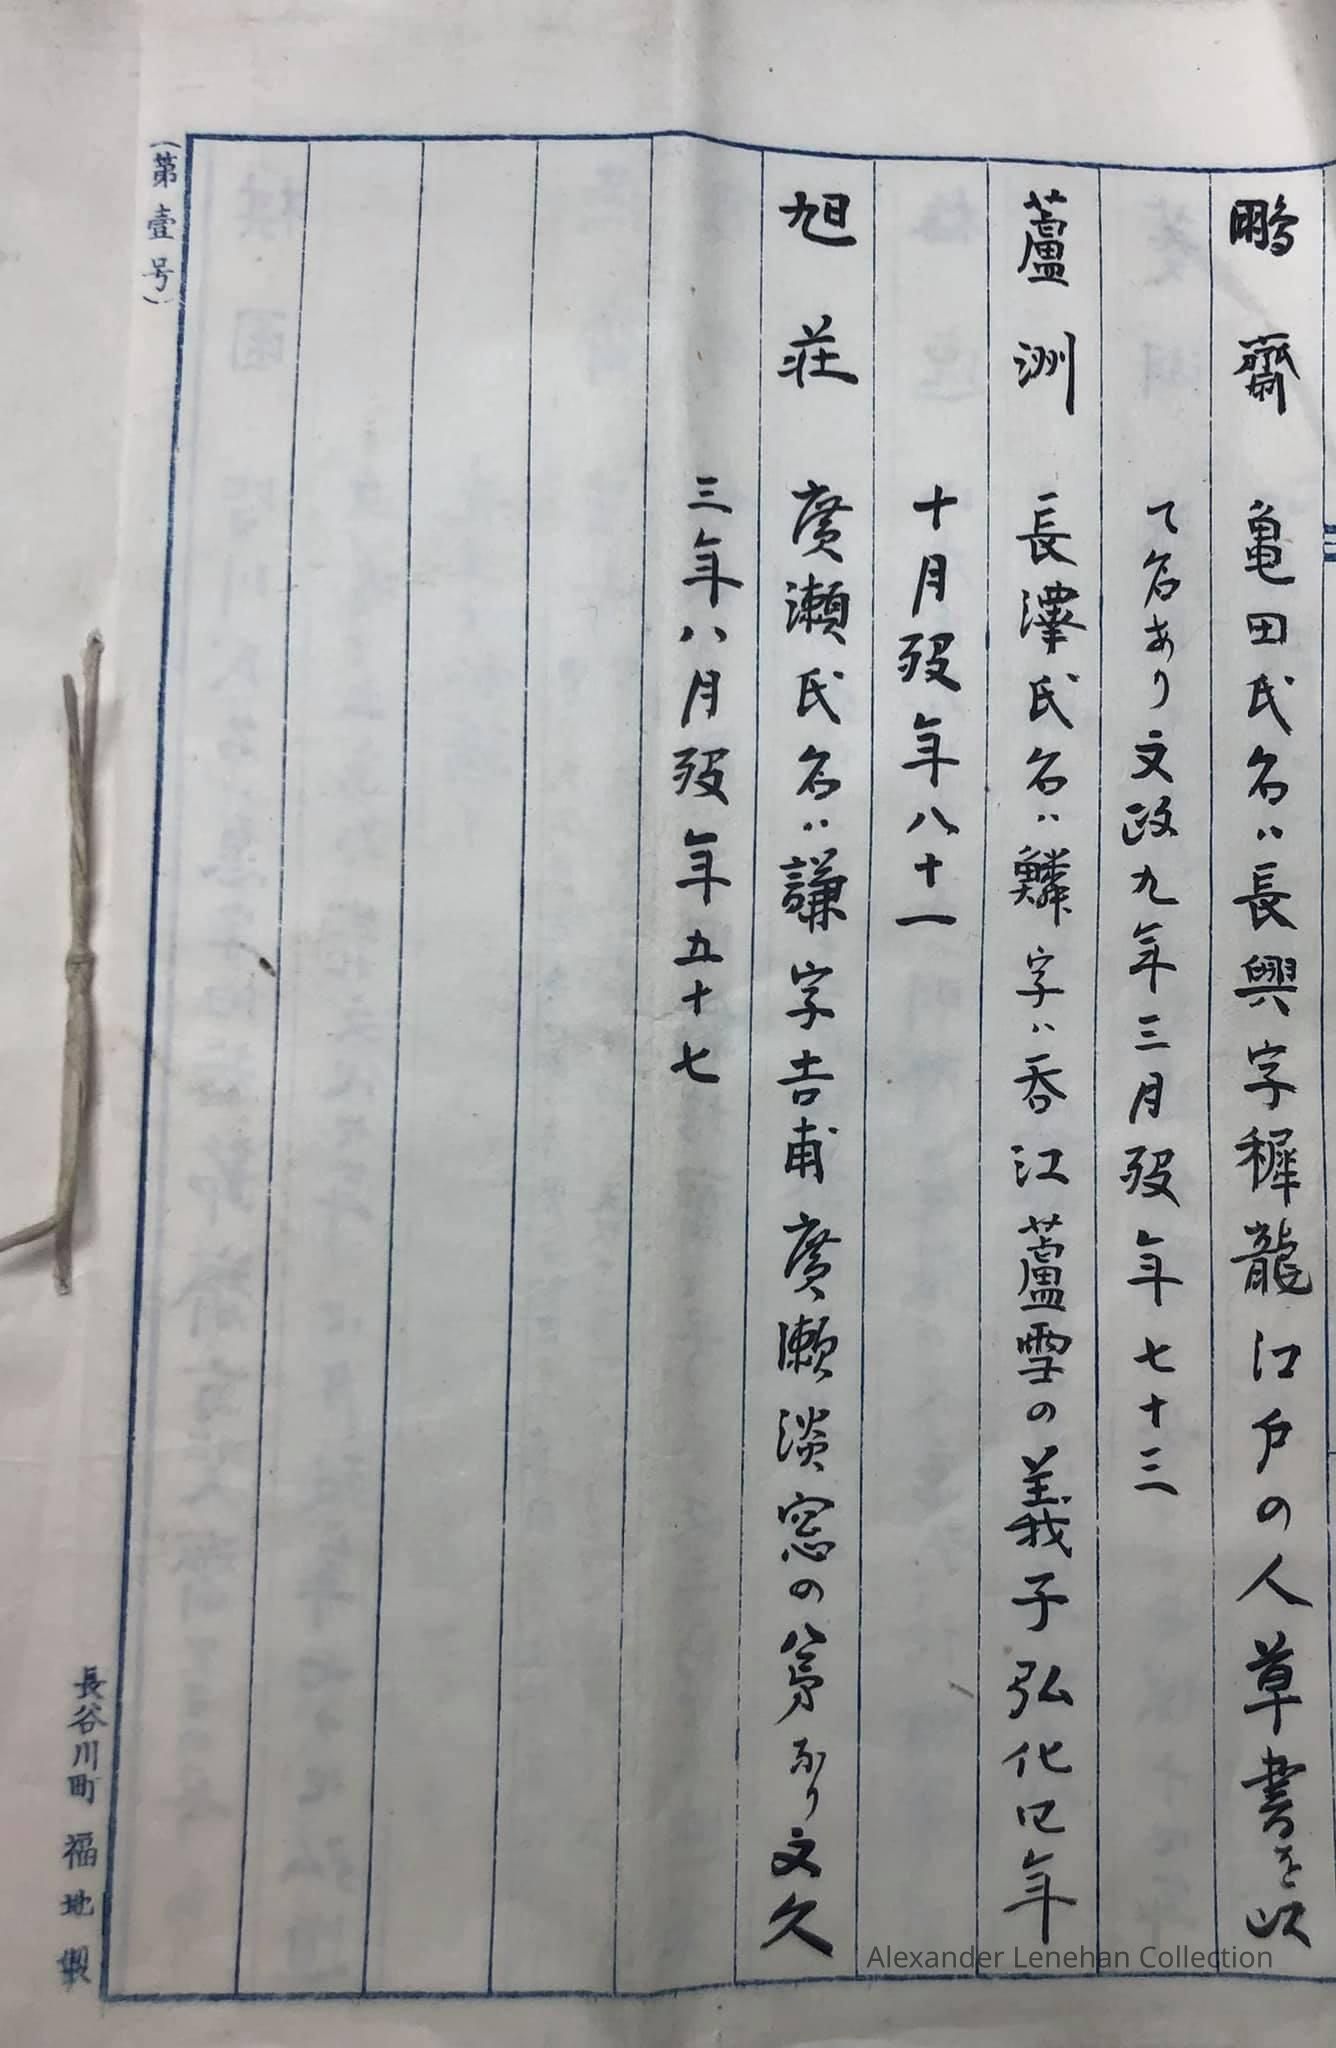 鵬齋 亀田氏名ハ長興字穉龍江戸の人草書を以
て名あり文政九年三月歿年七十三
蘆洲 長澤氏名ハ鱗字ハ呑江蘆雪の義子弘化四年
十月歿年八十一
旭荘 廣瀬氏名ハ謙字吉甫廣瀬淡窓の弟なり文久
三年八月歿年五十七
(第壹号)
長谷川町 福地製
Alexander Lenehan Collection